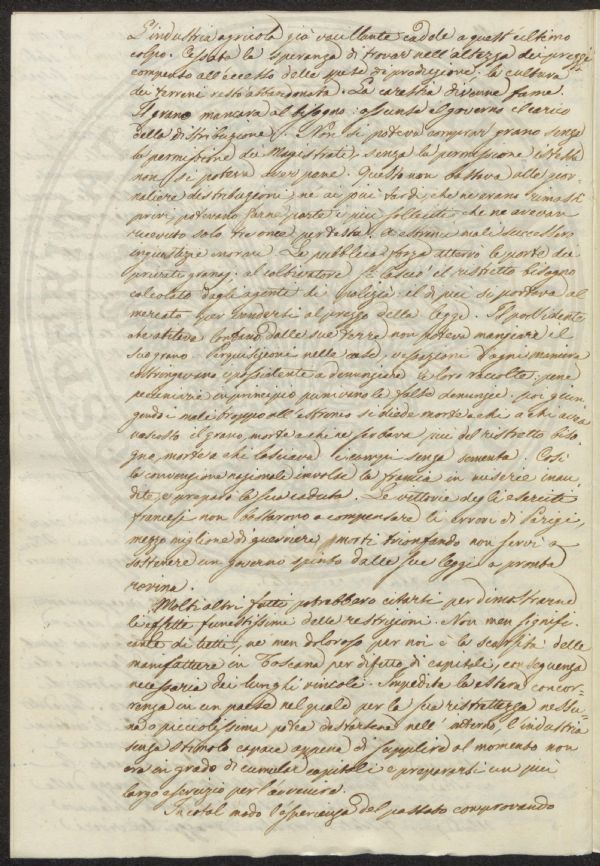 L'industria agricola già vacillante cadde a quest'ultimo
colpo. Cessata la speranza di trovar nell'altezza dei prezzi
compenso all'eccesso delle spese di produzione, la cultura
dei terreni restò abbandonata. La carestia divenne fame.
Il grano mancava al bisogno: assunse il governo il carico
della distribuzione. Non si poteva comprar grano senza
la permissione dei Magistrati, senza la permissione istessa
non si poteva aver pane. Questo non bastava alle gior-
naliere distribuzioni, ne ai più tardi, che ne erano rimasti
privi, potevano farne parte i più solleciti che ne avevan
ricevuto solo tre once per testa. A estremi mali successero
ingiustizie enormi. La pubblica forza atterrò le porte dei
privati granaj: al coltivatore si lasciò il ristretto bisogno
calcolato dagli agenti di polizia: il di più si portava al
mercato per vendersi al prezzo della legge. Il possidente
che abitava lontano dalle sue terre non poteva mangiare il
suo grano. Perquisizioni nelle case, vessazioni d'ogni maniera
costringevano i possidenti a denunziare le loro raccolte: pene
pecuniarie in principio punivano le false denunzie: poi giun-
gendo i mali troppo all'estremo si diede morte a chi avea
nascosto il grano, morte a chi ne serbava più del ristretto biso-
gno, morte a chi lasciava i campi senza sementa. Così
la convenzione nazionale involse la francia in miserie inau-
dite, e preparò la sua caduta. Le vittorie degli eserciti
francesi non bastarono a compensare gli errori di Parigi,
mezzo miglione di guerrieri morti trionfando non servì a
sostenere un governo spinto dalle sue leggi a pronta
rovina.
Molti altri fatti potrebbero citarsi per dimostrarne
gli effetti funestissimi delle restrizioni. Non men signifi-
cante di tutti, ne men doloroso per noi è la scarsità delle
manifatture in Toscana per difetto di capitale, conseguenza
necessaria dei lunghi vincoli. Impedita la estera concor-
renza in un paese nel quale per la sua ristrettezza nessu-
na o piccolissima potea destarsene nell'interno, l'industria
senza stimolo capace appena di supplire al momento non
era in grado di cumular capitali e prepararsi un più
largo esercizio per l'avvenire.
In cotal modo l'esperienza del passato comprovando